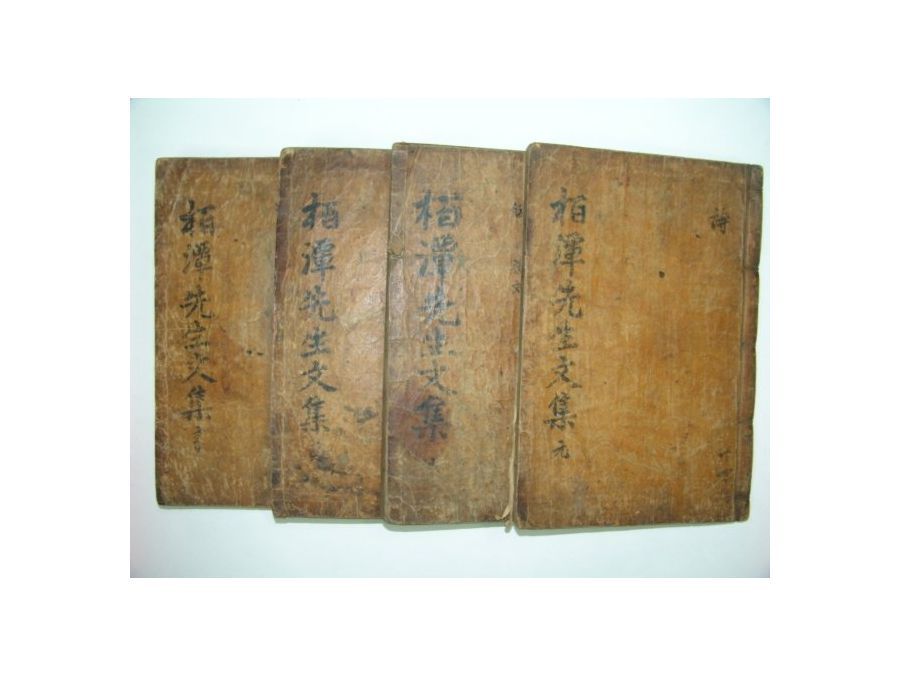 詩
栢潭先生文集 元
栢潭先生文集
栢潭先生文集
栢潭先生文集